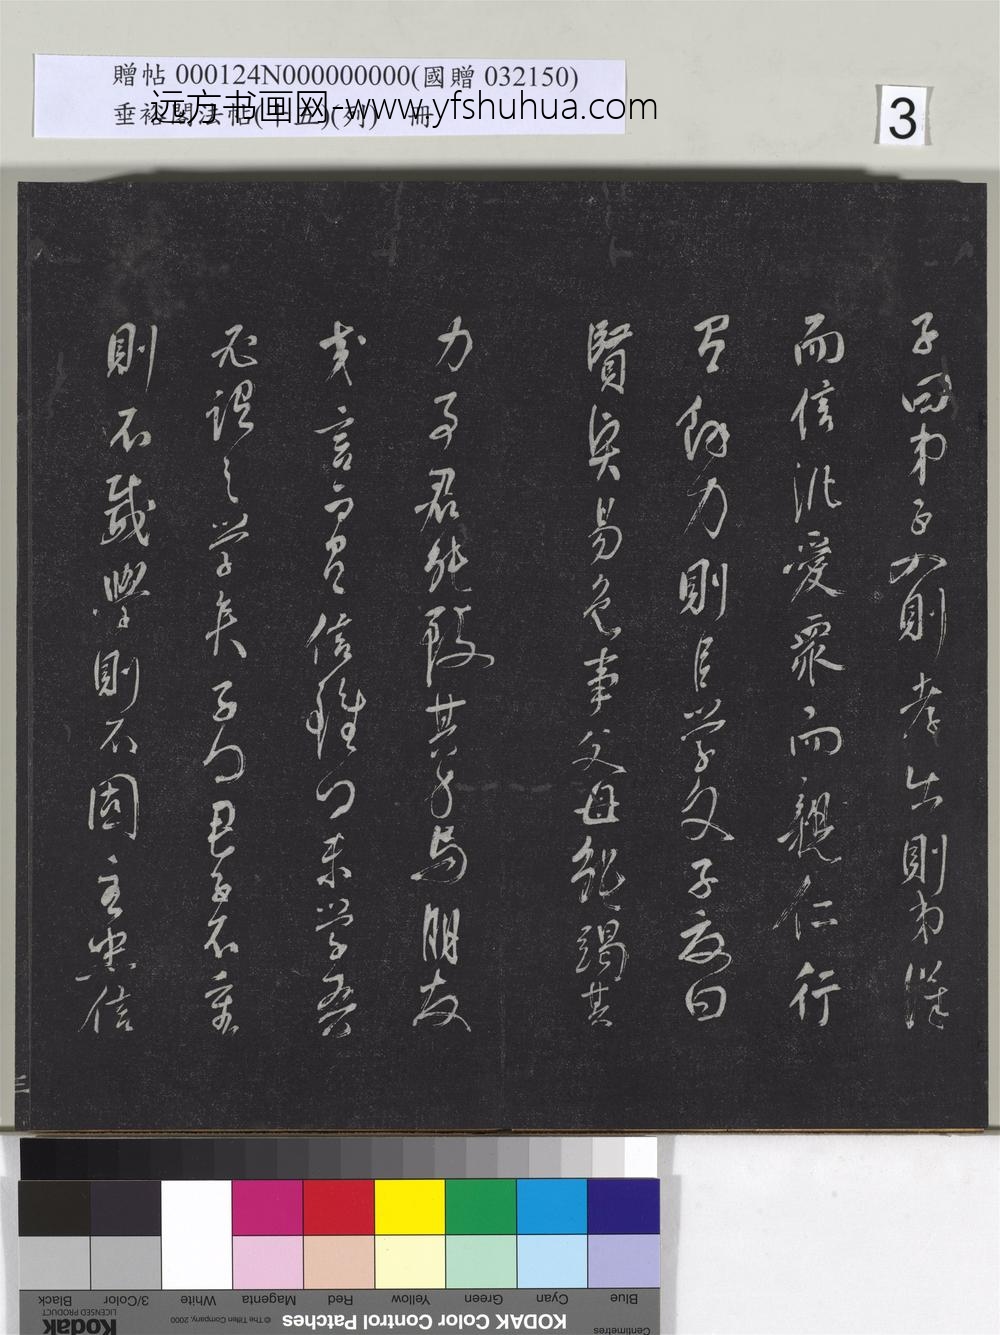 贈帖 000124N000000000(國贈 032150)
垂裕閣法帖(十五)(列) 冊
远方书画网-www.yfshuhua.com
3
子曰弟子入則孝出則弟謹
而信汎愛眾而親仁行
有餘力則以學文子夏曰
賢賢易色事父母能竭其
力事君能致其身与朋友
交言而有信雖曰未學吾
必謂之學矣子曰君子不重
則不威學則不固主忠信
三
KODAK Color Control Patches
© The Tiffen Company, 2000
Kodak
LICENSED PRODUCT
Centimetres
Blue Cyan Green Yellow Red Magenta White 3/Color Black